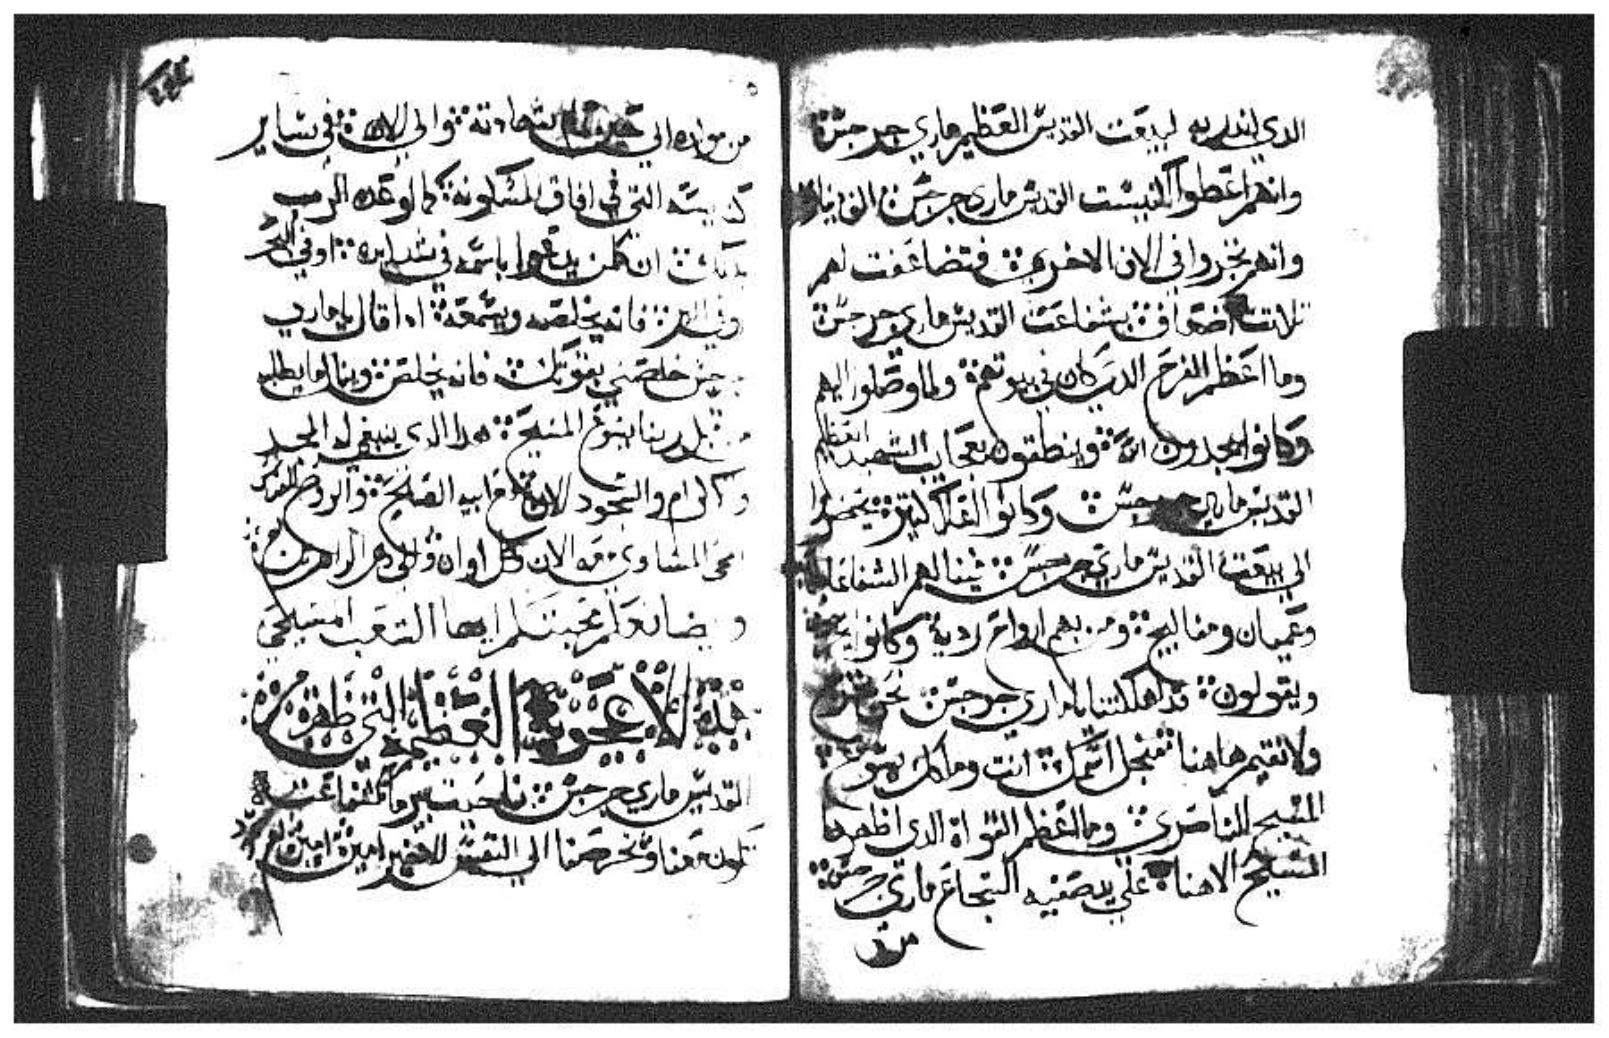 الدي اندر به لبيعت القديس العظيم ماري جرجس
وانهم اعطوا لكنيست القديس ماري جرجس
وانهم نجزوا في الان الاخري فتضاعفت لهم
تلاتت اضعاف بشفاعت القديس ماري جرجس
وما اعظم الفرح الدي كان في بيوتهم ولما وصلوا اليهم
وكانوا يمجدون الله وينطقون بعجايب الشهيد العظيم
القديس ماري جرجس وكانوا يحضروا
الي بيعت القديس ماري جرجس
وعميان ومفاليج ومن بهم ارواح ردية وكانوا
ويقولون قد اهلكتنا يا ماري جرجس
ولا نقيم هاهنا من اجل اسمك انت وملكك يسوع
المسيح الناصري وما اعظم القواة الدي اظهرها
المسيح الاهنا علي يد صفيه الشجاع ماري جرجس
من
من مولده الي حين شهادته والي الان في ساير
كنيسته التي في افاق المسكونه كما وعده الرب
بدلك ان كلمن يدعوا باسمه في شدايده او في البحر
وفي البر فانه يخلصه ويسمعه ادا قال يا ماري
جرجس خلصني بقوتك فانه يخلص وينال ما يطلب
من قبل ربنا يسوع المسيح هدا الدي ينبغي له المجد
والاكرام والسجود الان مع ابيه الصالح والروح القدس
المحي المساوي معه الان وكل اوان والي دهر الداهرين
وايضا نعلم محبتكم ايها الشعب المسيحي
هذه الاعجوبة العظيمة التي ظهرت من
القديس ماري جرجس
معنا امين امين